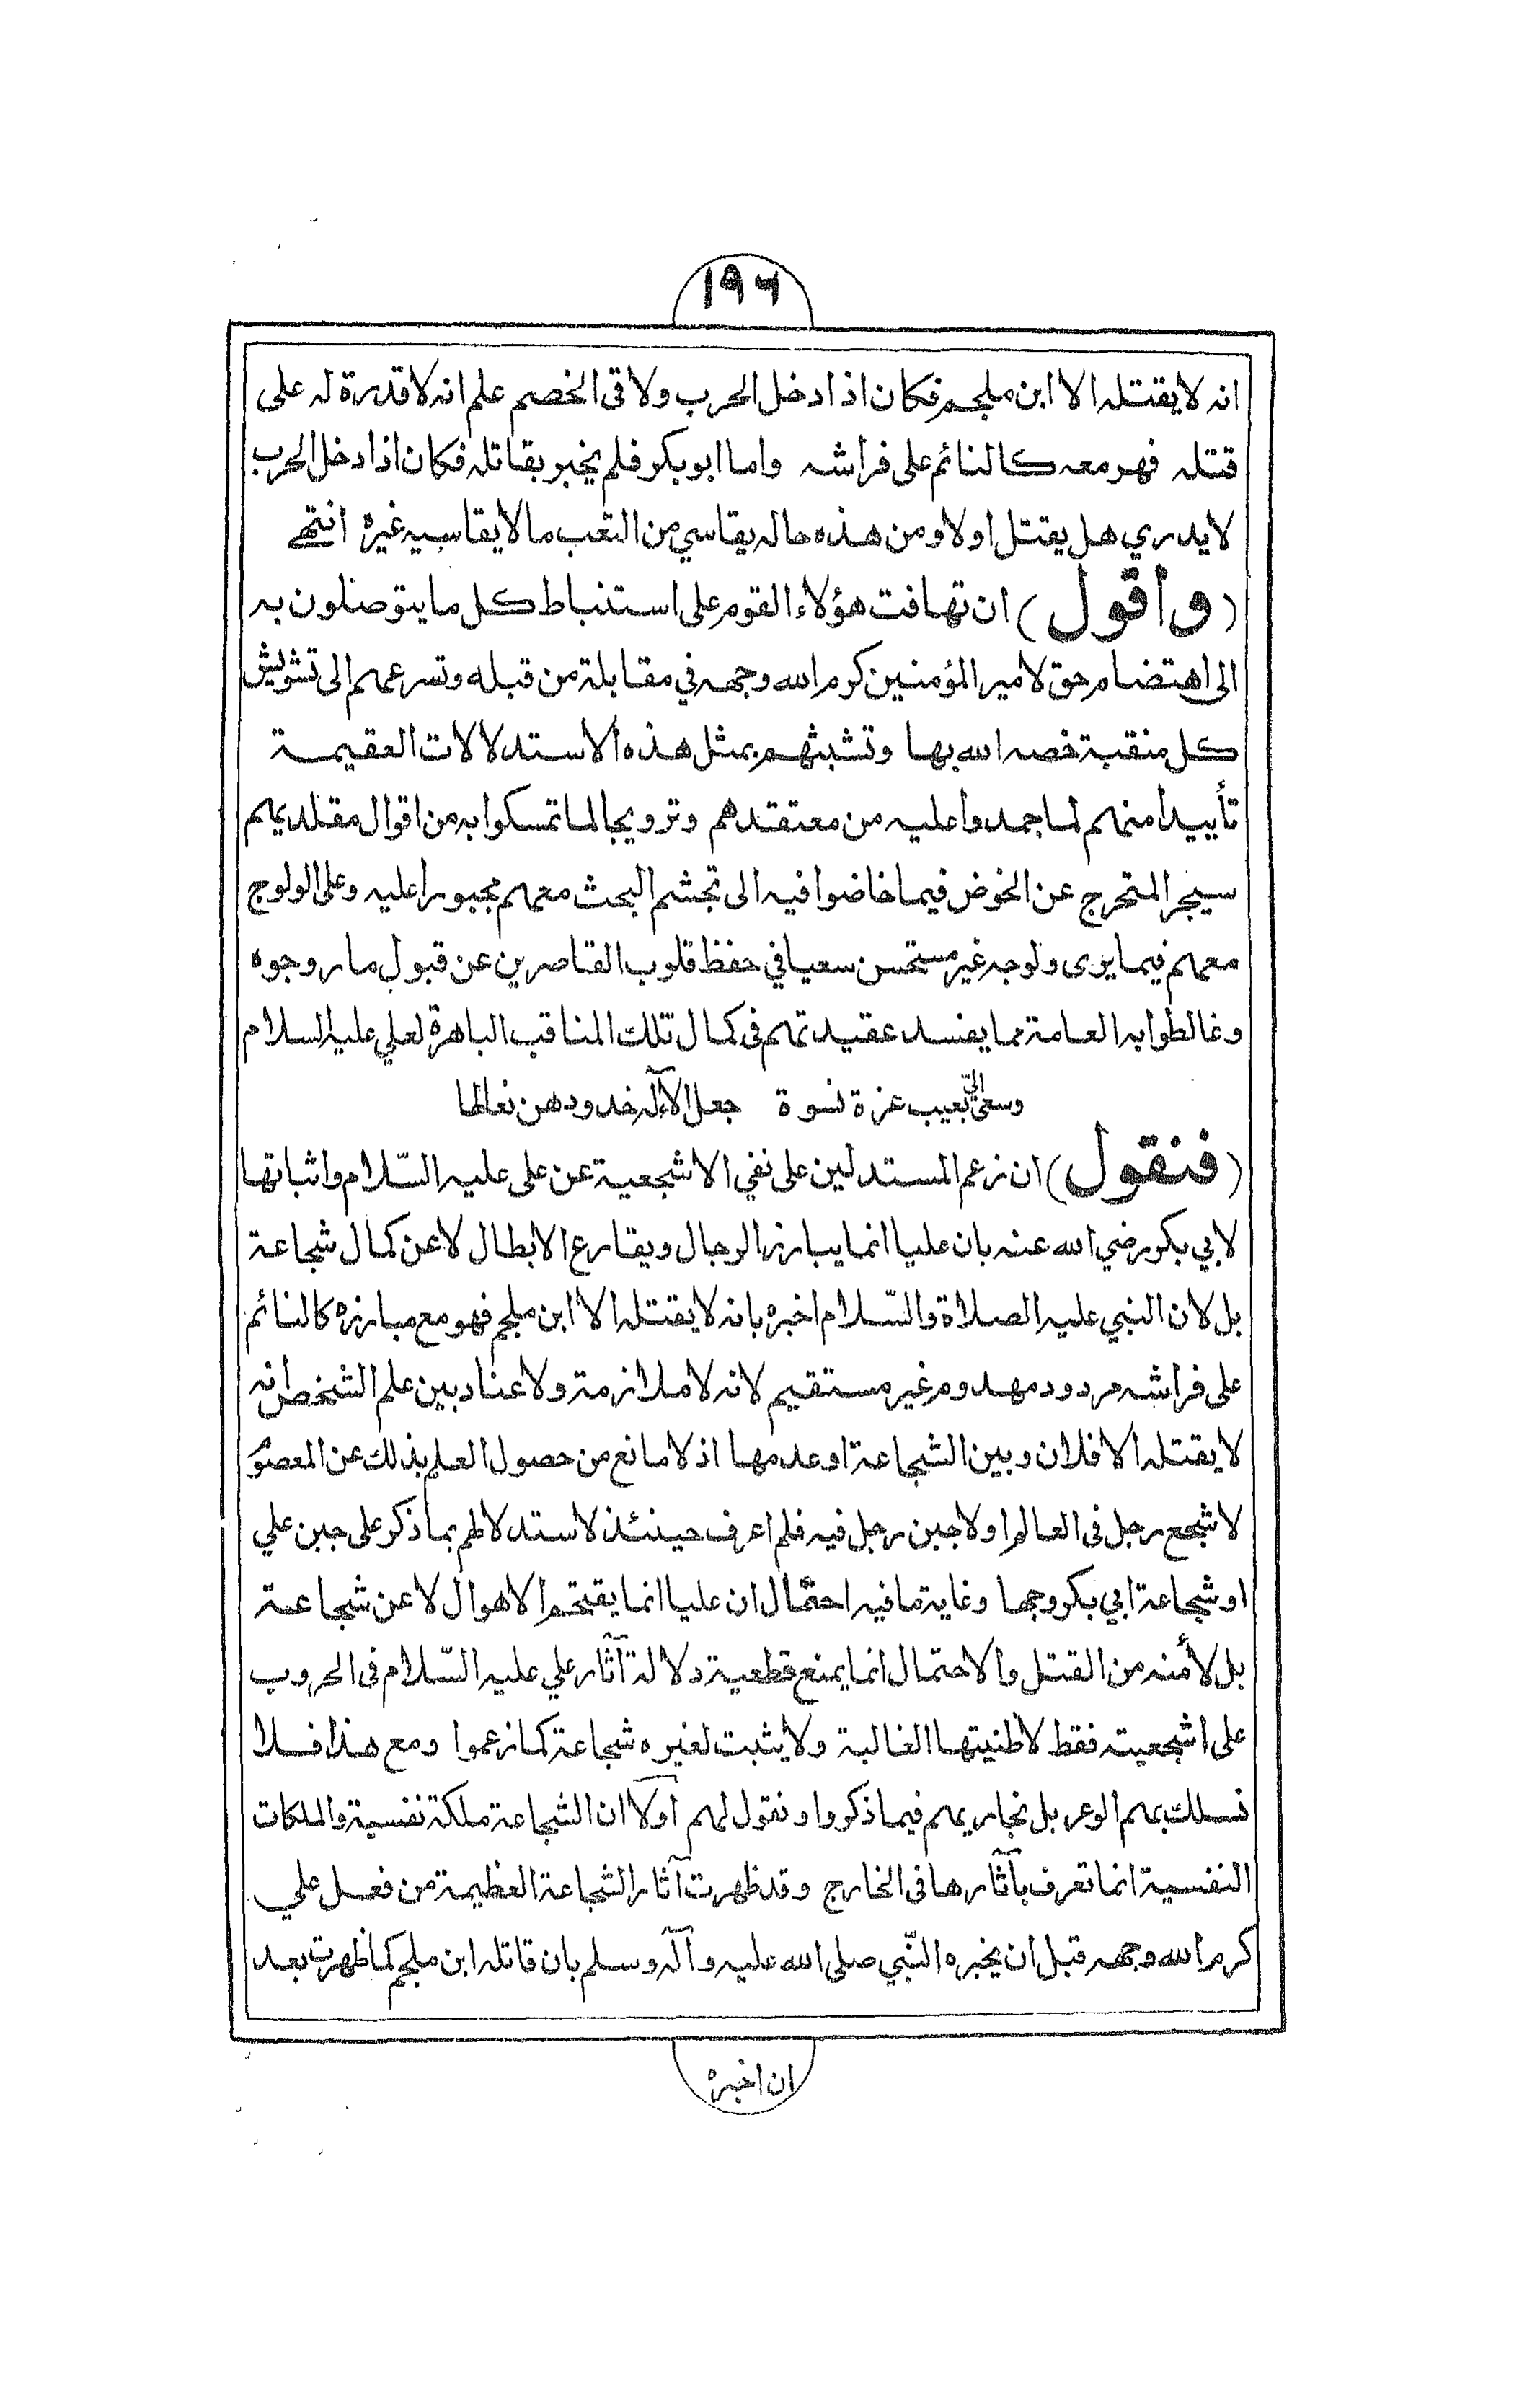 ١٩٦
انه لا يقتله الا ابن ملجم فكان اذا دخل الحرب ولاقى الخصم علم انه لا قدرة له على
قتله فهو معه كالنائم على فراشه واما ابو بكر فلم يخبر بقاتله فكان اذا دخل الحرب
لا يدري هل يقتل اولا ومن هذه حاله يقاسي من التعب ما لا يقاسيه غيره انتهى
(واقول) ان تهافت هؤلاء القوم على استنباط كل ما يتوصلون به
الى اهتضام حق لامير المؤمنين كرم الله وجهه في مقابلة من قبله وتسرعهم الى تشويش
كل منقبة خصه الله بها وتشبثهم بمثل هذه الاستدلالات العقيمة
تأييدا منهم لما جمدوا عليه من معتقدهم وترويجا لما تمسكوا به من اقوال مقلديهم
سيجر المتحرج عن الخوض فيما خاضوا فيه الى تجشم البحث معهم مجبورا عليه وعلى الولوج
معهم فيما يرى ولوجه غير مستحسن سعيا في حفظ قلوب القاصرين عن قبول ما روجوه
وغالطوا به العامة مما يفسد عقيدتهم في كمال تلك المناقب الباهرة لعلي عليه السلام
وسعى اليّ بعيب عزة نسوة جعل الآله خدودهن نعالها
(فنقول) ان زعم المستدلين على نفي الاشجعية عن علي عليه السّلام واثباتها
لابي بكر رضي الله عنه بان عليا انما يبارز الرجال ويقارع الابطال لا عن كمال شجاعة
بل لان النبي عليه الصلاة والسّلام اخبره بانه لا يقتله الا ابن ملجم فهو مع مبارزه كالنائم
على فراشه مردود مهدوم غير مستقيم لانه لا ملازمة ولا عناد بين علم الشخص انه
لا يقتله الا فلان وبين الشجاعة او عدمها اذ لا مانع من حصول العلم بذلك عن المعصوم
لا شجع رجل في العالم او لا جبن رجل فيه فلم اعرف حينئذ لاستدلالهم بما ذكر على جبن علي
او شجاعة ابي بكر وجها وغاية ما فيه احتمال ان عليا انما يقتحم الاهوال لا عن شجاعة
بل لأمنه من القتل والاحتمال انما يمنع قطعية دلالة آثار علي عليه السّلام في الحروب
على اشجعيته فقط لا ظنيتها الغالبة ولا يثبت لغيره شجاعة كما زعموا ومع هذا فلا
نسلك بهم الوعر بل نجاريهم فيما ذكروا ونقول لهم اولا ان الشجاعة ملكة نفسية والملكات
النفسية انما تعرف بآثارها في الخارج وقد ظهرت آثار الشجاعة العظيمة من فعل علي
كرم الله وجهه قبل ان يخبره النّبي صلى الله عليه وآله وسلم بان قاتله ابن ملجم كما ظهرت بعد
ان اخبره